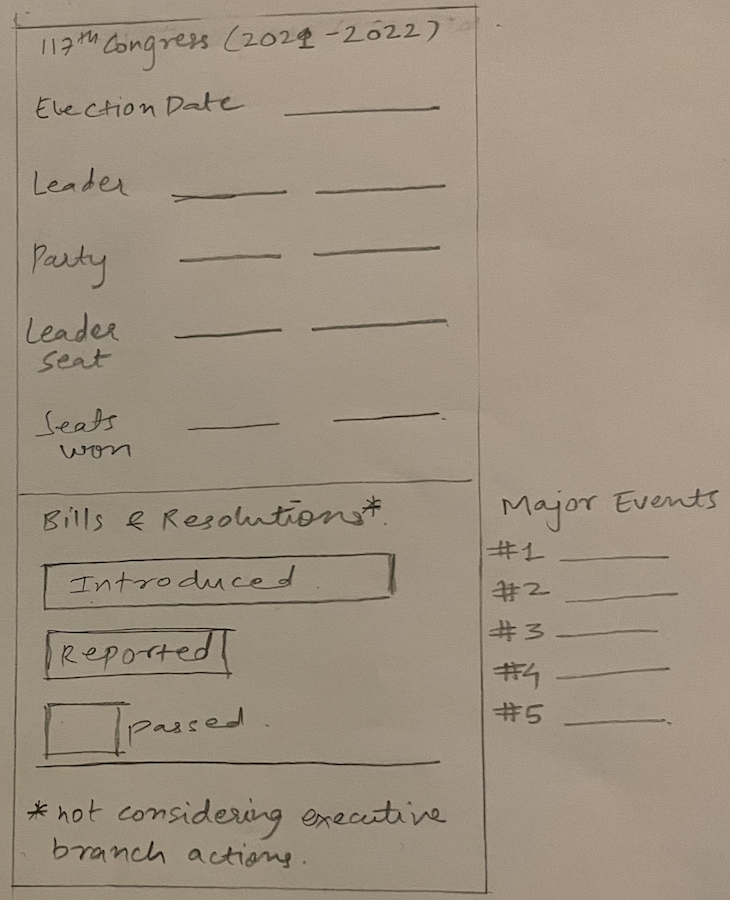 117th Congress (2021-2022)
Election Date
Leader
Party
Leader
seat
Seats
won
Bills & Resolutions*.
Introduced
Reported
passed.
*not considering executive
branch actions.
Major Events
#1
#2
#3
#4
#5